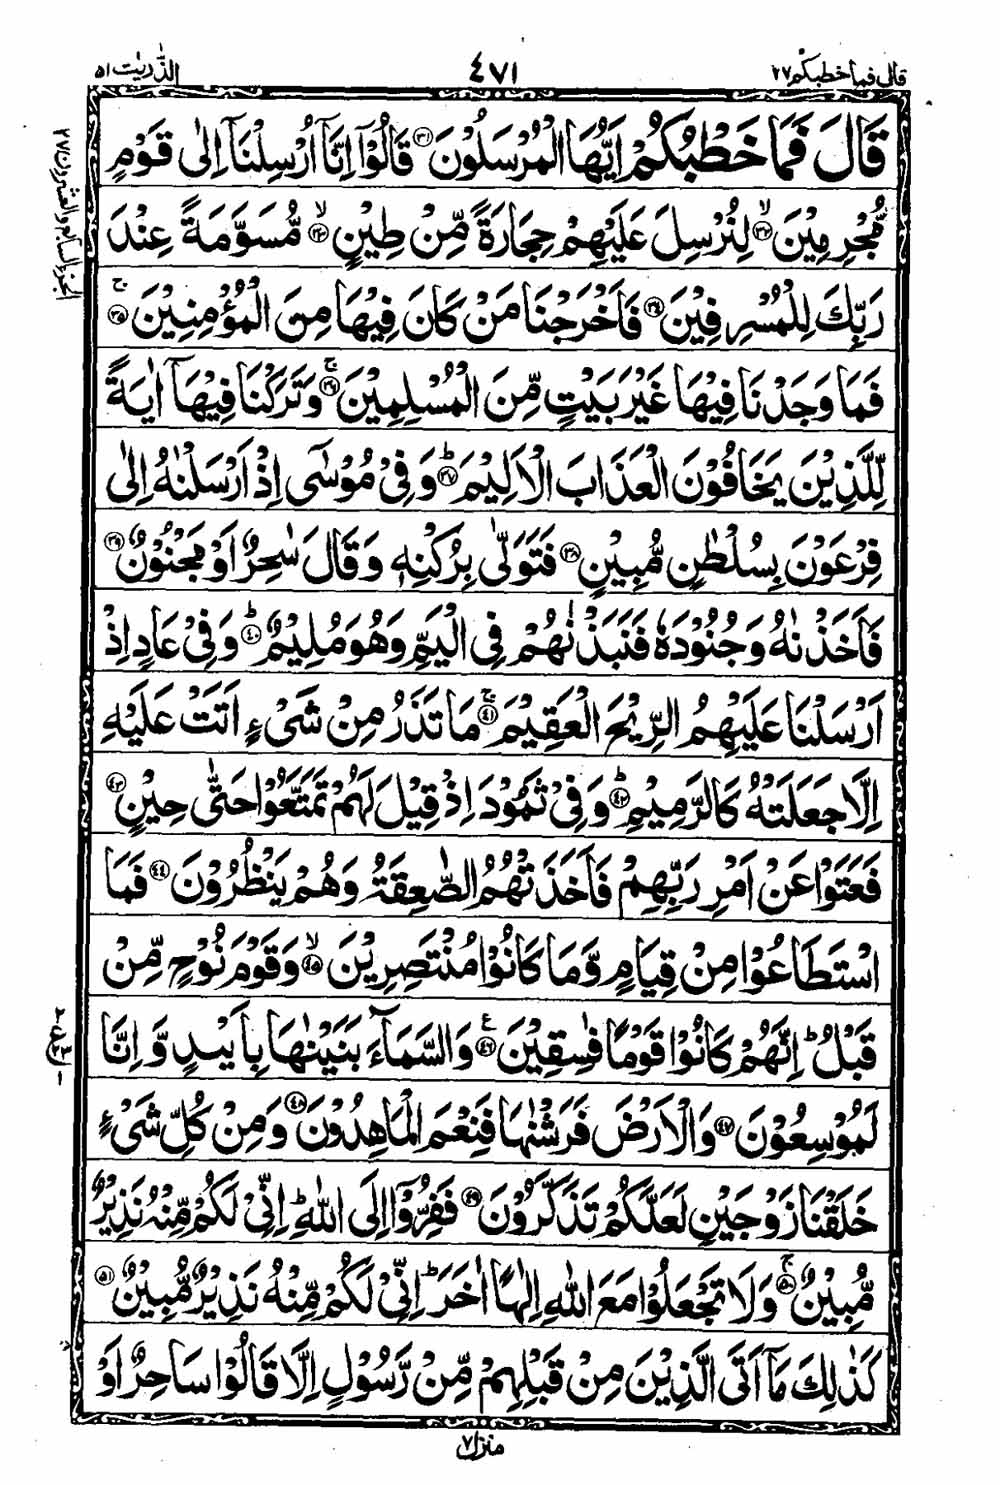 قال فما خطبكم ٢٧
٤٧١
الذّٰریٰت ٥١
قَالَ فَمَا خَطْبُكُمْ اَيُّهَا الْمُرْسَلُوْنَ ٣١ قَالُوْٓا اِنَّآ اُرْسِلْنَآ اِلٰى قَوْمٍ
مُّجْرِمِيْنَ ٣٢ۙ لِنُرْسِلَ عَلَيْهِمْ حِجَارَةً مِّنْ طِيْنٍ ٣٣ۙ مُّسَوَّمَةً عِنْدَ
رَبِّكَ لِلْمُسْرِفِيْنَ ٣٤ فَاَخْرَجْنَا مَنْ كَانَ فِيْهَا مِنَ الْمُؤْمِنِيْنَ ٣٥ۚ
فَمَا وَجَدْنَا فِيْهَا غَيْرَ بَيْتٍ مِّنَ الْمُسْلِمِيْنَ ٣٦ۚ وَتَرَكْنَا فِيْهَآ اٰيَةً
لِّلَّذِيْنَ يَخَافُوْنَ الْعَذَابَ الْاَلِيْمَ ٣٧ؕ وَفِيْ مُوْسٰٓى اِذْ اَرْسَلْنٰهُ اِلٰى
فِرْعَوْنَ بِسُلْطٰنٍ مُّبِيْنٍ ٣٨ فَتَوَلّٰى بِرُكْنِهٖ وَقَالَ سٰحِرٌ اَوْ مَجْنُوْنٌ ٣٩
فَاَخَذْنٰهُ وَجُنُوْدَهٗ فَنَبَذْنٰهُمْ فِي الْيَمِّ وَهُوَ مُلِيْمٌ ٤٠ؕ وَفِيْ عَادٍ اِذْ
اَرْسَلْنَا عَلَيْهِمُ الرِّيْحَ الْعَقِيْمَ ٤١ۚ مَا تَذَرُ مِنْ شَيْءٍ اَتَتْ عَلَيْهِ
اِلَّا جَعَلَتْهُ كَالرَّمِيْمِ ٤٢ؕ وَفِيْ ثَمُوْدَ اِذْ قِيْلَ لَهُمْ تَمَتَّعُوْا حَتّٰى حِيْنٍ ٤٣
فَعَتَوْا عَنْ اَمْرِ رَبِّهِمْ فَاَخَذَتْهُمُ الصّٰعِقَةُ وَهُمْ يَنْظُرُوْنَ ٤٤ فَمَا
اسْتَطَاعُوْا مِنْ قِيَامٍ وَّمَا كَانُوْا مُنْتَصِرِيْنَ ٤٥ۙ وَقَوْمَ نُوْحٍ مِّنْ
قَبْلُ ؕ اِنَّهُمْ كَانُوْا قَوْمًا فٰسِقِيْنَ ٤٦ع وَالسَّمَآءَ بَنَيْنٰهَا بِاَيْىدٍ وَّاِنَّا
لَمُوْسِعُوْنَ ٤٧ وَالْاَرْضَ فَرَشْنٰهَا فَنِعْمَ الْمَاهِدُوْنَ ٤٨ وَمِنْ كُلِّ شَيْءٍ
خَلَقْنَا زَوْجَيْنِ لَعَلَّكُمْ تَذَكَّرُوْنَ ٤٩ فَفِرُّوْٓا اِلَى اللّٰهِ ؕ اِنِّيْ لَكُمْ مِّنْهُ نَذِيْرٌ
مُّبِيْنٌ ٥٠ۚ وَلَا تَجْعَلُوْا مَعَ اللّٰهِ اِلٰهًا اٰخَرَ ؕ اِنِّيْ لَكُمْ مِّنْهُ نَذِيْرٌ مُّبِيْنٌ ٥١
كَذٰلِكَ مَآ اَتَى الَّذِيْنَ مِنْ قَبْلِهِمْ مِّنْ رَّسُوْلٍ اِلَّا قَالُوْا سَاحِرٌ اَوْ
الجزء السابع والعشرون ٢٧
منزل ٧